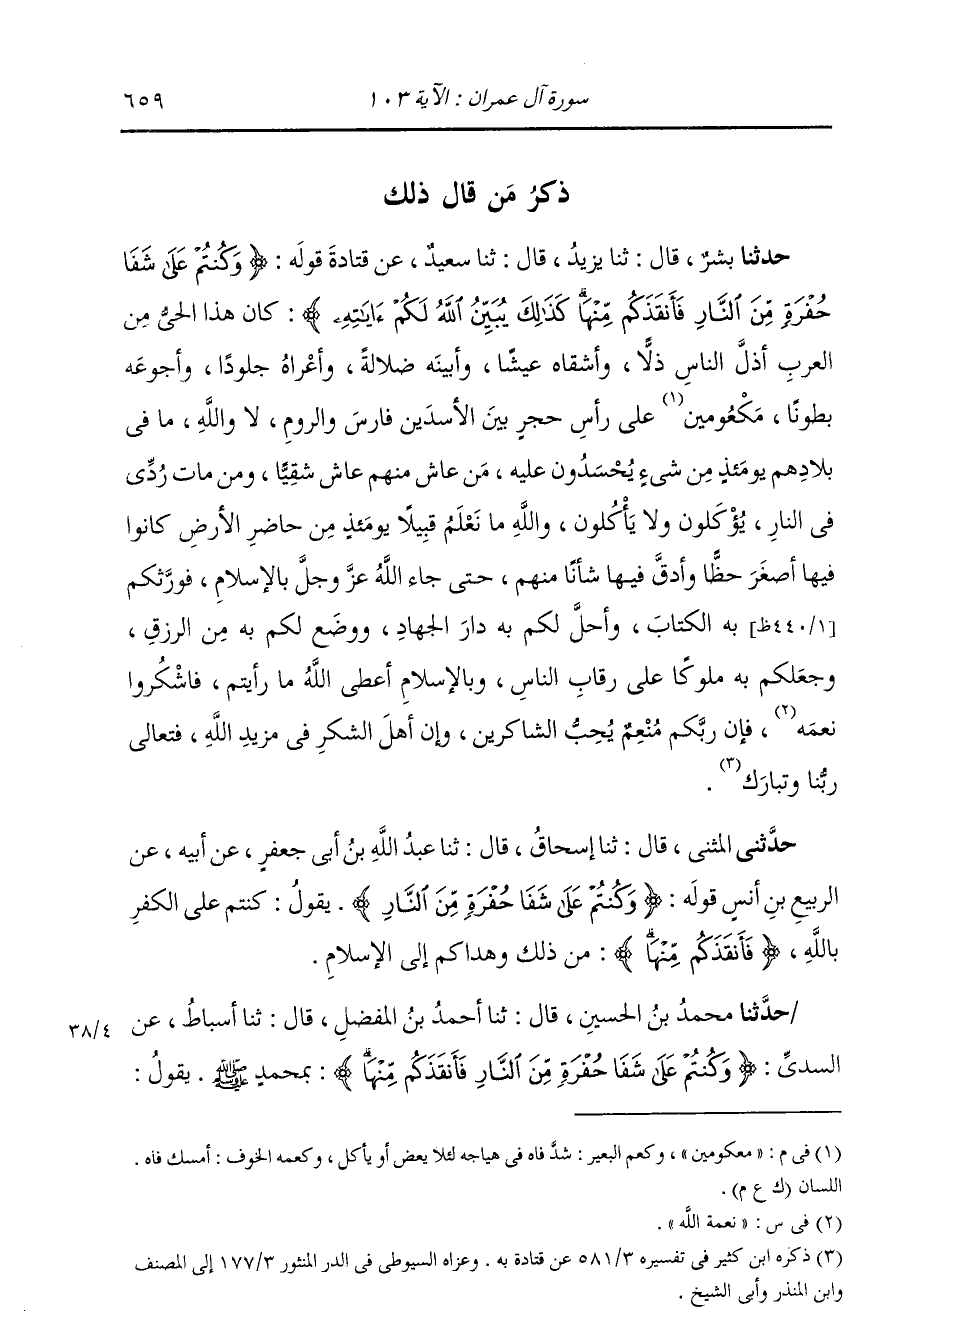 سورة آل عمران : الآية ١٠٣ ٦٥٩
ذكرُ مَن قال ذلك
حدثنا بشرٌ ، قال : ثنا يزيدُ ، قال : ثنا سعيدٌ ، عن قتادةَ قولَه : ﴿ وَكُنتُمْ عَلَىٰ شَفَا
حُفْرَةٍ مِّنَ ٱلنَّارِ فَأَنقَذَكُم مِّنْهَاۗ كَذَٰلِكَ يُبَيِّنُ ٱللَّهُ لَكُمْ ءَايَٰتِهِۦ ﴾ : كان هذا الحىُّ مِن
العربِ أذلَّ الناسِ ذلًّا ، وأشقاه عيشًا ، وأبينَه ضلالةً ، وأعْراهُ جلودًا ، وأجوعَه
بطونًا ، مَكْعُومين(١) على رأسِ حجرٍ بينَ الأسدَين فارسَ والرومِ ، لا واللَّهِ ، ما فى
بلادِهم يومَئذٍ مِن شىءٍ يُحْسَدُون عليه ، مَن عاش منهم عاش شقِيًّا ، ومن مات رُدِّى
فى النارِ ، يُؤْكَلون ولا يَأْكُلون ، واللَّهِ ما نَعْلَمُ قبِيلًا يومَئذٍ مِن حاضرِ الأرضِ كانوا
فيها أصغَرَ حظًّا وأدقَّ فيها شأنًا منهم ، حتى جاء اللَّهُ عزَّ وجلَّ بالإسلامِ ، فورَّثكم
[١/٤٤٠ظ] به الكتابَ ، وأحلَّ لكم به دارَ الجهادِ ، ووضَع لكم به مِن الرزقِ ،
وجعَلكم به ملوكًا على رقابِ الناسِ ، وبالإسلامِ أعطى اللَّهُ ما رأيتم ، فاشْكُروا
نعمَه(٢) ، فإن ربَّكم مُنْعِمٌ يُحِبُّ الشاكرين ، وإن أهلَ الشكرِ فى مزيدِ اللَّهِ ، فتعالى
ربُّنا وتبارَك(٣) .
حدَّثنى المثنى ، قال : ثنا إسحاقُ ، قال : ثنا عبدُ اللَّهِ بنُ أبى جعفرٍ ، عن أبيه ، عن
الربيعِ بنِ أنسٍ قولَه : ﴿ وَكُنتُمْ عَلَىٰ شَفَا حُفْرَةٍ مِّنَ ٱلنَّارِ ﴾ . يقولُ : كنتم على الكفرِ
باللَّهِ ، ﴿ فَأَنقَذَكُم مِّنْهَاۗ ﴾ : من ذلك وهداكم إلى الإسلامِ .
/حدَّثنا محمدُ بنُ الحسينِ ، قال : ثنا أحمدُ بنُ المفضلِ ، قال : ثنا أسباطُ ، عن ٣٨/٤
السدىِّ : ﴿ وَكُنتُمْ عَلَىٰ شَفَا حُفْرَةٍ مِّنَ ٱلنَّارِ فَأَنقَذَكُم مِّنْهَاۗ ﴾ : بمحمدٍ ﷺ . يقولُ :
(١) فى م : « معكومين » ، وكعم البعير : شدَّ فاه فى هياجه لئلا يعض أو يأكل ، وكعمه الخوف : أمسك فاه .
اللسان (ك ع م) .
(٢) فى س : « نعمة اللَّه » .
(٣) ذكره ابن كثير فى تفسيره ٥٨١/٣ عن قتادة به . وعزاه السيوطى فى الدر المنثور ١٧٧/٣ إلى المصنف
وابن المنذر وأبى الشيخ .